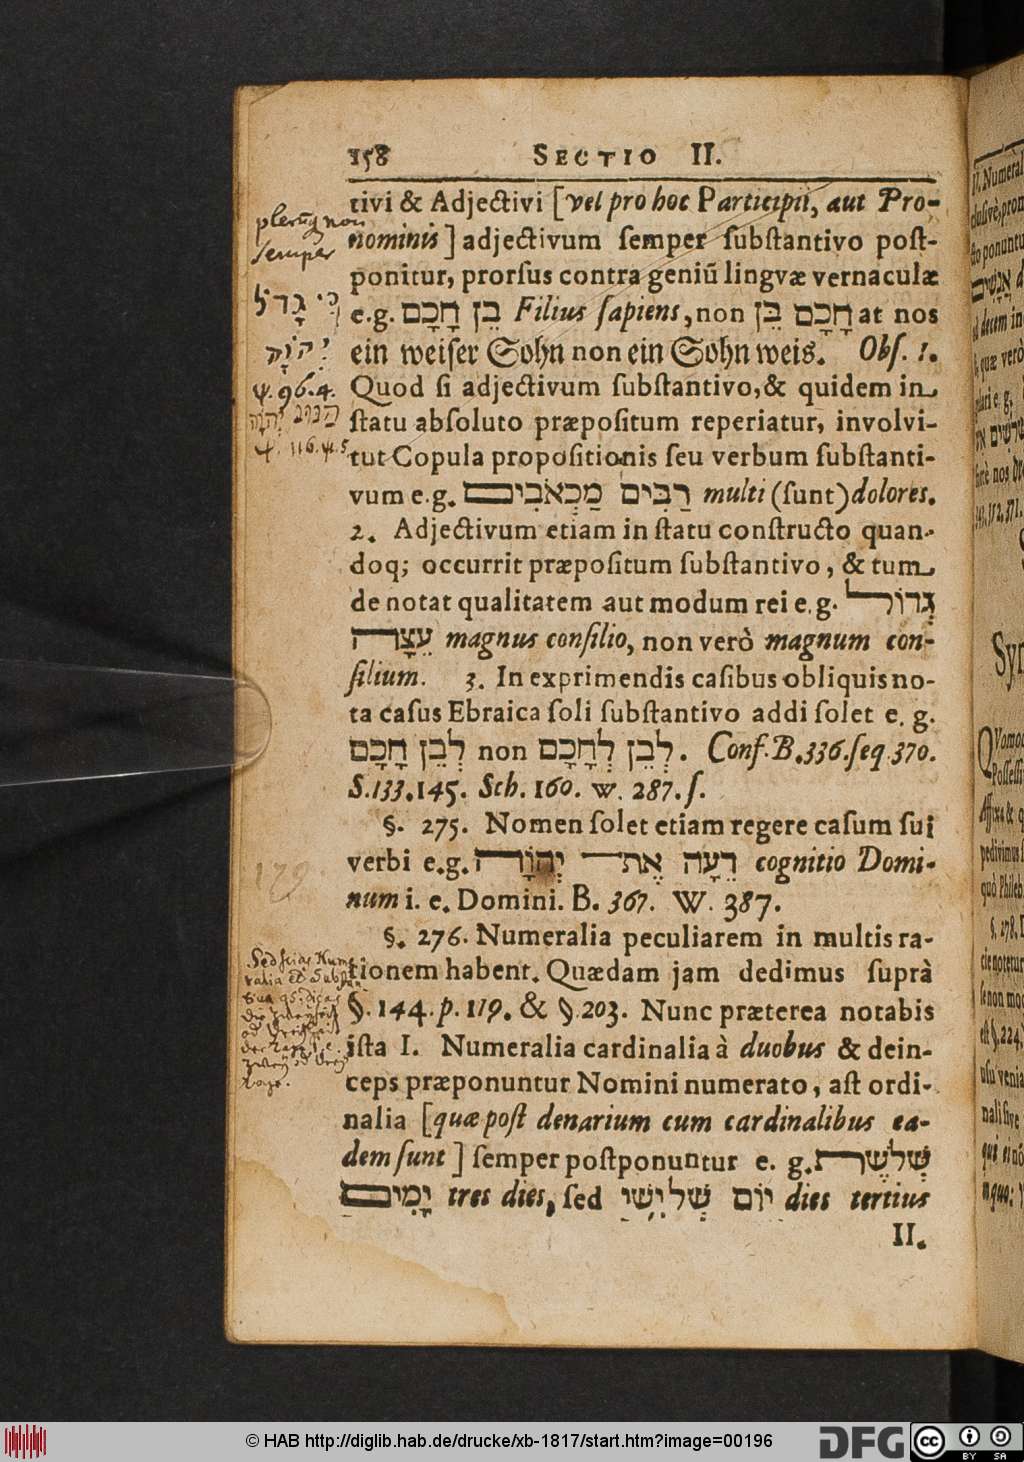 158 SECTIO II.
tivi & Adjectivi [vel pro hoc Participii, aut Pro-
nominis] adjectivum semper substantivo post-
ponitur, prorsus contra geniũ lingvæ vernaculæ
e.g. בֵּן חָכָם Filius sapiens, non חָכָם בֵּן at nos
ein weiser Sohn non ein Sohn weis. Obs. 1.
Quod si adjectivum substantivo, & quidem in
statu absoluto præpositum reperiatur, involvi-
tut Copula propositionis seu verbum substanti-
vum e.g. רַבִּים מַכְאֹבִים multi (sunt) dolores.
2. Adjectivum etiam in statu constructo quan-
doq; occurrit præpositum substantivo, & tum
de notat qualitatem aut modum rei e.g. גְּדוֹל
עֵצָה magnus consilio, non verò magnum con-
silium. 3. In exprimendis casibus obliquis no-
ta casus Ebraica soli substantivo addi solet e. g.
לְבֵן חָכָם non לְבֵן לְחָכָם. Conf. B. 336. seq. 370.
S. 133. 145. Sch. 160. w. 287. s.
§. 275. Nomen solet etiam regere casum sui
verbi e.g. דֵּעָה אֶת־יְהוָֹה cognitio Domi-
num i. e. Domini. B. 367. W. 387.
§. 276. Numeralia peculiarem in multis ra-
tionem habent. Quædam jam dedimus suprà
§. 144. p. 119. & §. 203. Nunc præterea notabis
ista I. Numeralia cardinalia à duobus & dein-
ceps præponuntur Nomini numerato, ast ordi-
nalia [quæ post denarium cum cardinalibus ea-
dem sunt] semper postponuntur e. g. שְׁלֹשֶׁת
יָמִים tres dies, sed יוֹם שְׁלִישִׁי dies tertius
II.
non
semper
כי גָדֹל
יְהוָֹה
ψ. 96. 4.
ψ. 116. ψ. 5
© HAB http://diglib.hab.de/drucke/xb-1817/start.htm?image=00196
DFG
cc BY SA